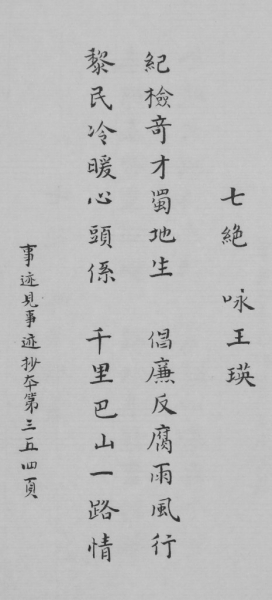 七絶 咏王瑛
紀檢奇才蜀地生 倡廉反腐雨風行
黎民冷暖心頭係 千里巴山一路情
事迹見事迹抄本第三五四頁